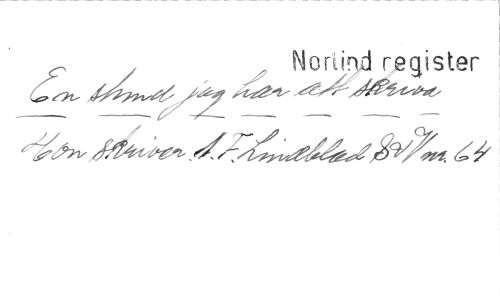 Norlind register
En stund jag har att skriva
Hon skriver A. F. Lindblad SVV nr. 64